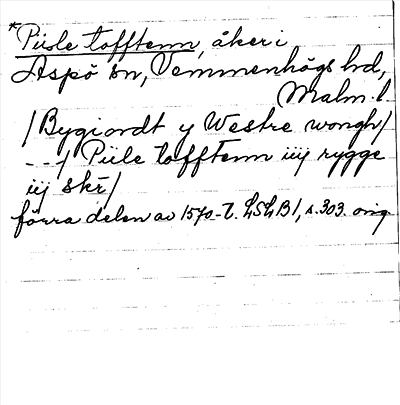 *Piile tofftenn, åker i
Aspö sn, Vemmenhögs hd,
Malm. l.
/Bygiordt y Westre wongh/
- - -/ Piile tofftenn iiij rygge
iij skr̄/
förra delen av 1570-t. LSLB1, s. 303. orig